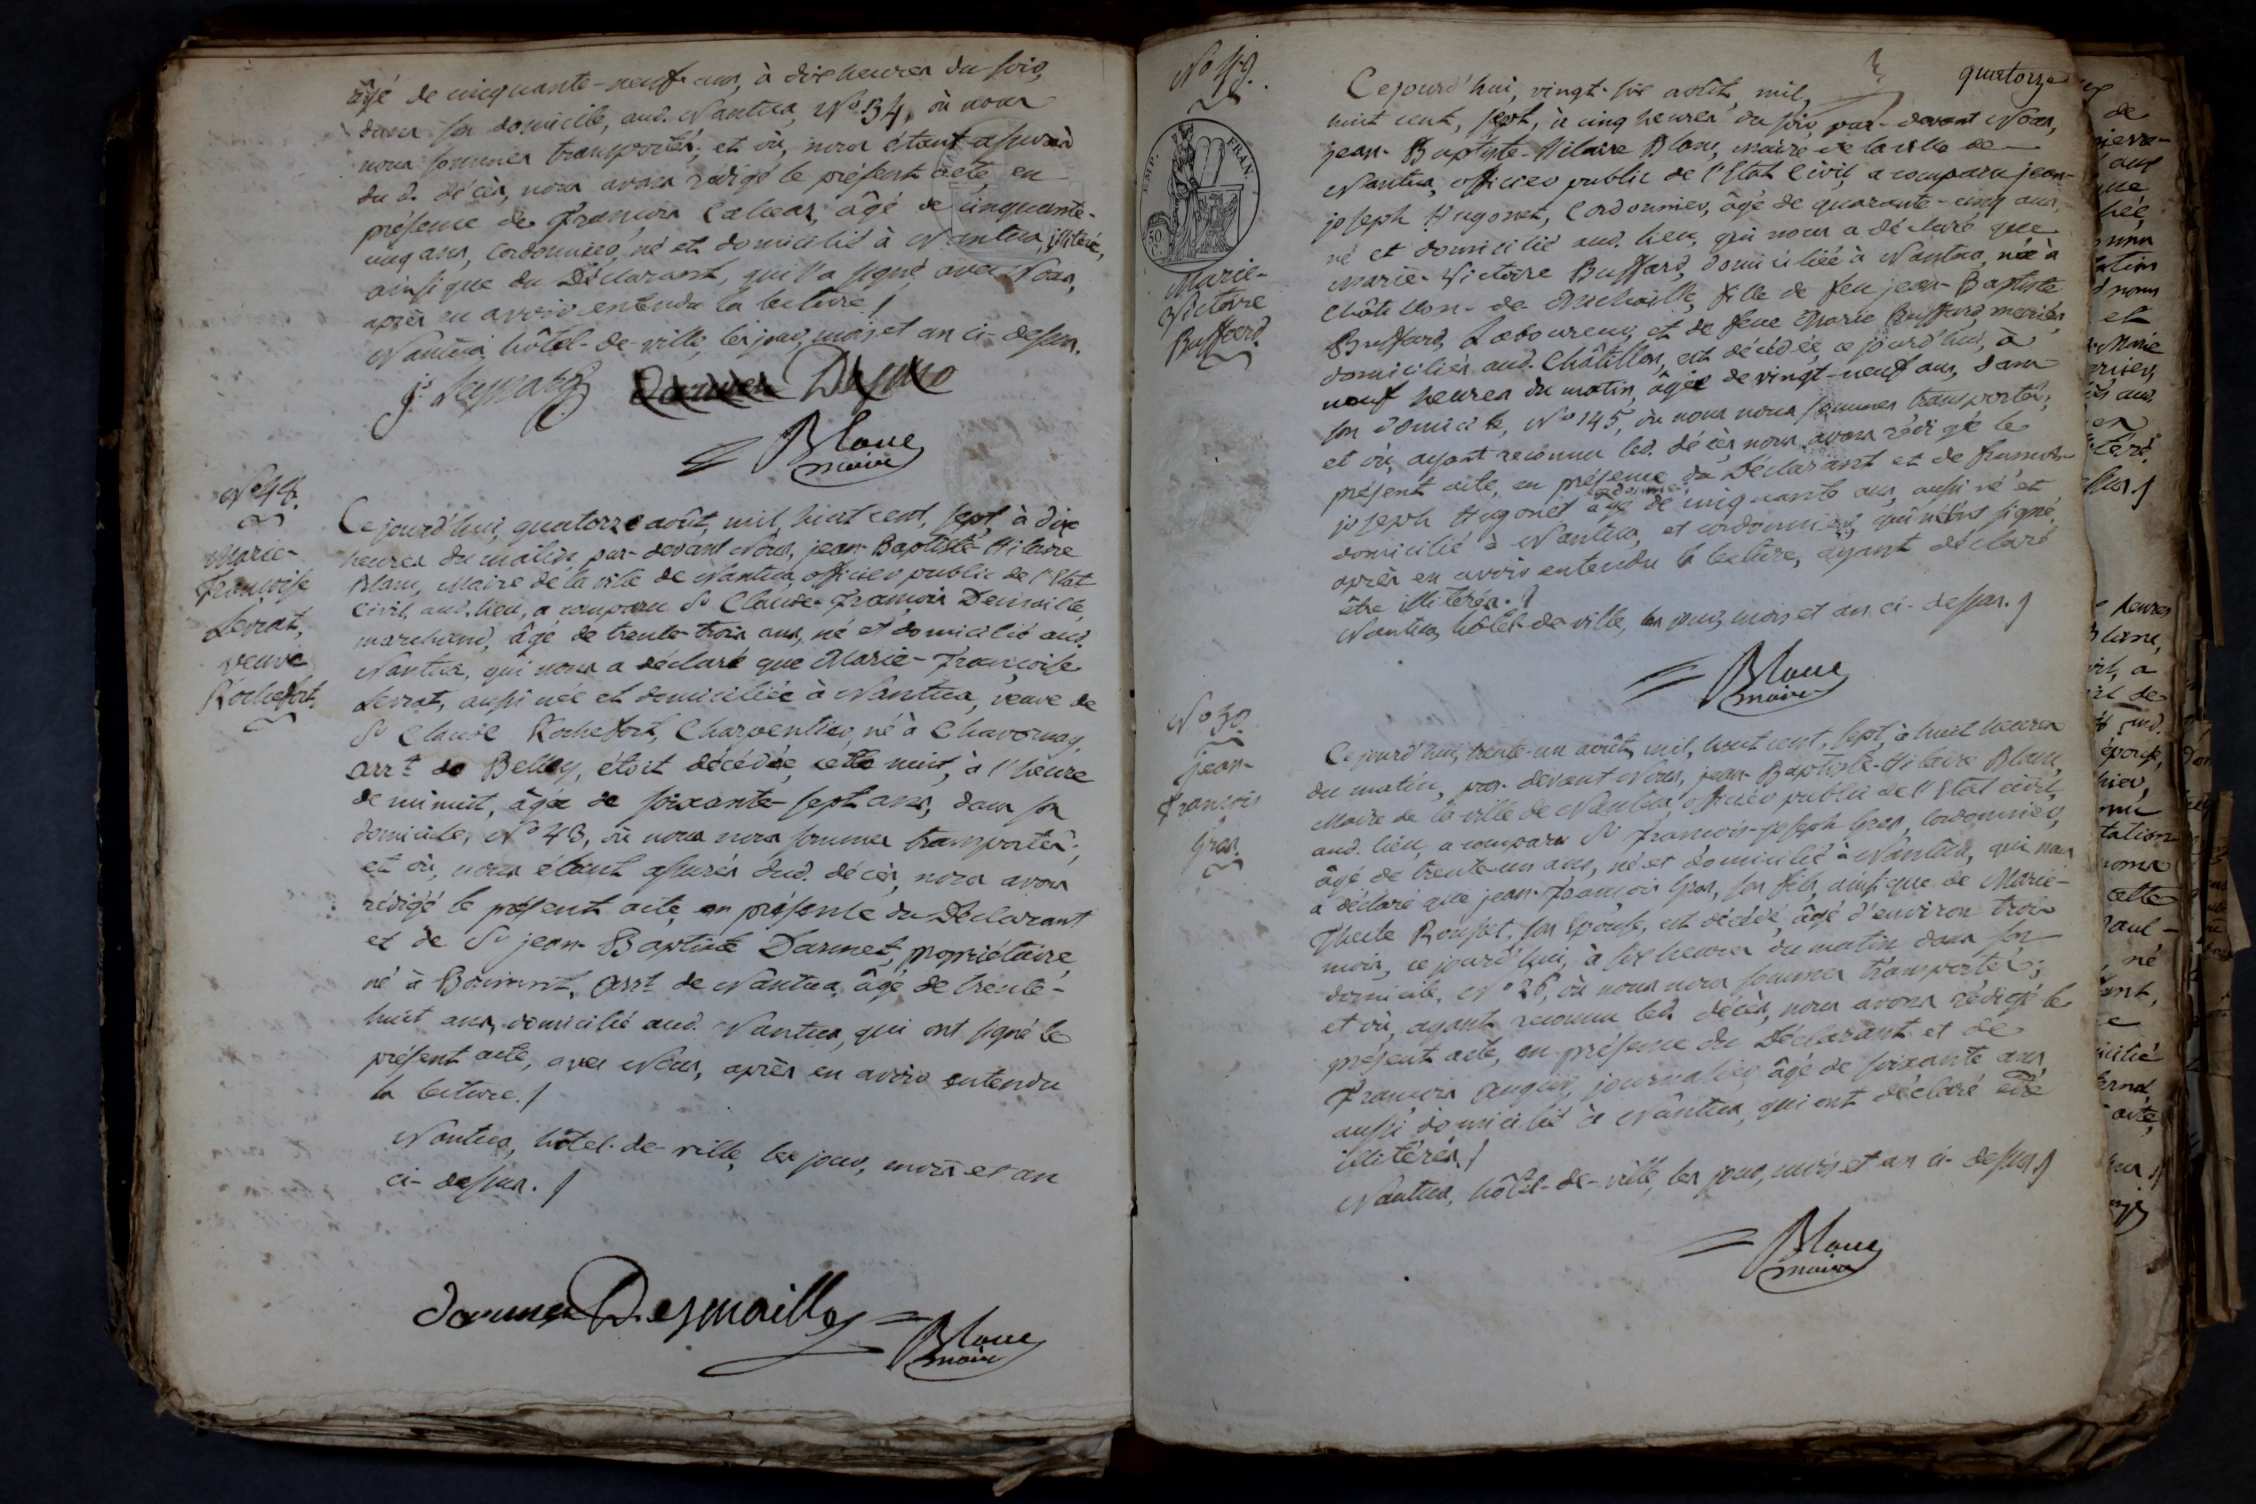 âgé de cinquante-neuf ans, à dix heures du soir,
dans son domicile, aud. Nantua, No. 34, où nous
nous sommes transportés; et où, nous étant assurés
du d. décès, nous avons rédigé le présent acte, en
présence de François âgé de cinquante-
cinq ans, cordonnier, né et domicilié à Nantua, illitéré,
ainsi que du Déclarant, qui l'a signé avec Nous,
après en avoir entendu la lecture./
Nantua, hôtel-de-ville, les jour, mois et an ci-dessus.
Blanc
maire
Marie-
Françoise
Serrat,
veuve
Rochefort.
Ce jourd'hui, quatorze août, mil, huit cent, sept, à dix
heures du matin, par-devant Nous, jean-Baptiste-Hilaire
Blanc, Maire de la ville de Nantua, officier public de l'Etat
Civil, aud. lieu, a comparu Sr Claude-François
marchand, âgé de trente-trois ans, né et domicilié aud.
Nantua, qui nous a déclaré que Marie-Françoise
Serrat, aussi née et domiciliée à Nantua, veuve de
Sr Claude Rochefort, Charpentier, né à Chavornay,
arrt. de Belley, étoit décédée, cette nuit, à l'heure
de minuit, âgée de soixante-sept ans, dans son
domicile, No 43, où nous nous sommes transportés;
et où, nous étant assurés dud. décès, nous avons
rédigé le présent acte, en présence du Déclarant
et de Sr jean-Baptiste Darmet, propriétaire,
né à arrt. de Nantua, âgé de trente-
huit ans, domicilié aud. Nantua, qui ont signé le
présent acte, avec Nous, après en avoir entendu
la lecture./
Nantua, hôtel-de-ville, les jour, mois et an
ci-dessus./
Desmailles
Blanc
maire
quatorze
No 49.
EMP. FRAN.
Marie-
Victoire
Buffard.
Ce jourd'hui, vingt-six août, mil,
huit cent, sept, à cinq heures du soir, par-devant Nous,
jean-Baptiste-Hilaire Blanc, maire de la ville de
Nantua, officier public de l'Etat Civil, a comparu jean-
joseph Hugonet, Cordonnier, âgé de quarante-cinq ans,
né et domicilié aud. lieu, qui nous a déclaré que
Marie-Victoire Buffard, domiciliée à Nantua, née à
Châtillon-de-Michaille, fille de feu jean-Baptiste
Buffard, Laboureur, et de feue Marie Buffard, mariés,
domiciliés aud. Châtillon, est décédée, ce jourd'hui, à
neuf heures du matin, âgée de vingt-neuf ans, dans
son domicile, No 145, où nous nous sommes transportés;
et où, ayant reconnu led. décès, nous avons rédigé le
présent acte, en présence du Déclarant et de françois-
joseph Hugonet âgé de cinquante ans, aussi né et
domicilié à Nantua, et cordonnier, qui n'ont signé,
après en avoir entendu la lecture, ayant déclaré
être illitérés./
Nantua, hôtel-de-ville, les jour, mois et an ci-dessus./
Blanc
maire
No 50.
Jean-
François
Gros.
Ce jourd'hui, trente-un août, mil, huit cent, sept, à huit heures
du matin, par-devant Nous, jean-Baptiste-Hilaire Blanc,
Maire de la ville de Nantua, officier public de l'Etat civil,
aud. lieu, a comparu Sr François-joseph Gros, Cordonnier,
âgé de trente-un ans, né et domicilié à Nantua, qui nous
a déclaré que jean-François Gros, son fils, ainsi que de Marie-
son Epouse, est décédé, âgé d'environ trois
mois, ce jourd'hui, à six heures du matin dans son
domicile, No 26, où nous nous sommes transportés;
et où, ayant reconnu led. décès, nous avons rédigé le
présent acte, en présence du Déclarant et de
François journalier, âgé de soixante ans,
aussi domicilié à Nantua, qui ont déclaré être
illitérés./
Nantua, hôtel-de-ville, les jour, mois et an ci-dessus./
Blanc
maire